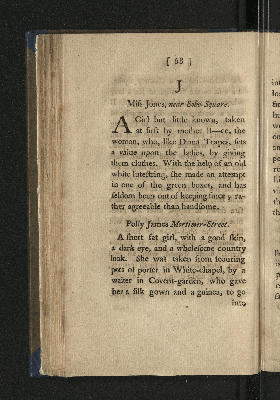 [ 68 ]
J
Miſs Jones, near Soho-Square.
A Girl but little known, taken
at firſt by mother H—ce, the
woman, who, like Diana Trapes, ſets
a value upon the ladies, by giving
them clothes. With the help of an old
white luteſtring, ſhe made an attempt
in one of the green boxes, and has
ſeldom been out of keeping ſince; ra-
ther agreeable than handſome.
Polly James Mortimer-Street.
A ſhort fat girl, with a good ſkin,
a dark eye, and a wholeſome country
look. She was taken from ſcouring
pots of porter in White-chapel, by a
waiter in Covent-garden, who gave
her a ſilk gown and a guinea, to go
into